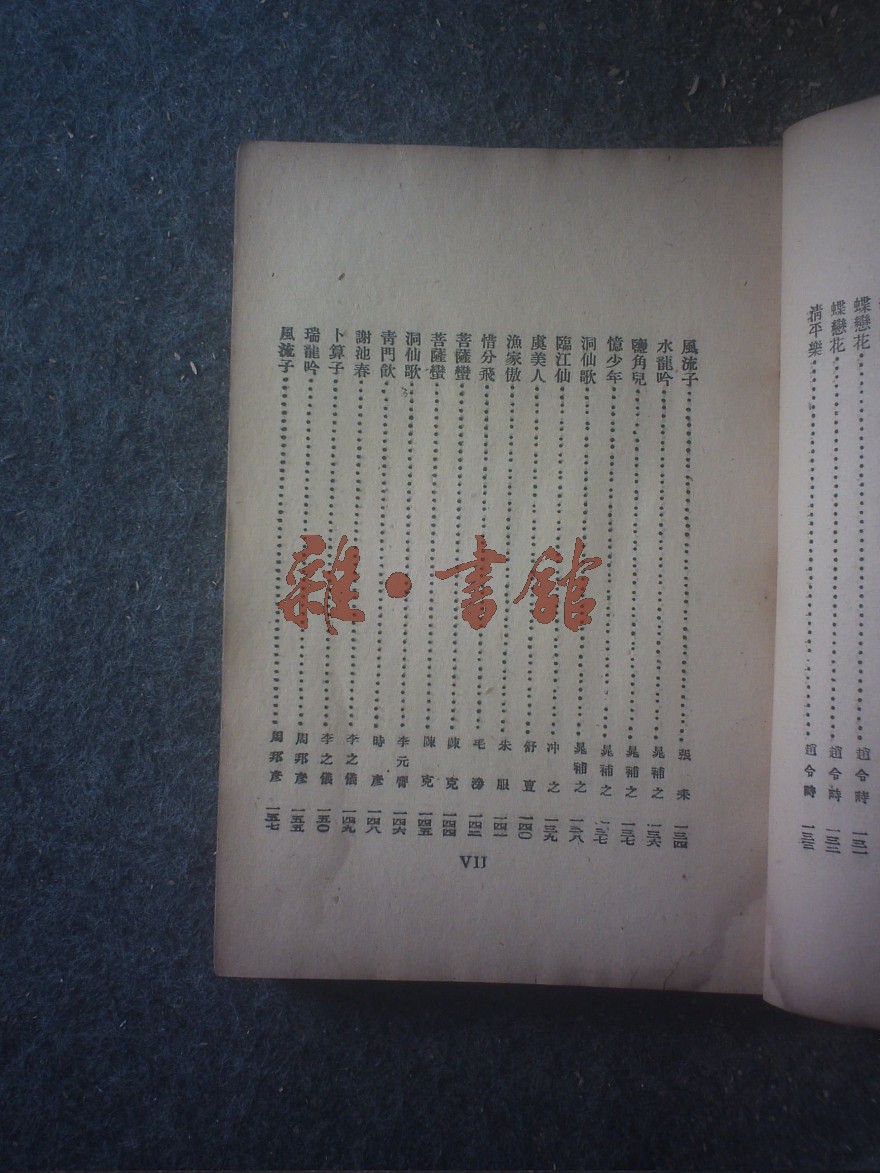 蝶戀花 趙令畤 一三一
蝶戀花 趙令畤 一三二
清平樂 趙令畤 一三三
風流子 張耒 一三四
水龍吟 晁補之 一三六
鹽角兒 晁補之 一三七
憶少年 晁補之 一三七
洞仙歌 晁補之 一三八
臨江仙 冲之 一三九
虞美人 舒亶 一四〇
漁家傲 朱服 一四一
惜分飛 毛滂 一四三
菩薩蠻 陳克 一四四
菩薩蠻 陳克 一四五
洞仙歌 李元膺 一四六
青門飲 時彥 一四八
謝池春 李之儀 一四九
卜算子 李之儀 一五〇
瑞龍吟 周邦彥 一五五
風流子 周邦彥 一五七
VII
雜·書館